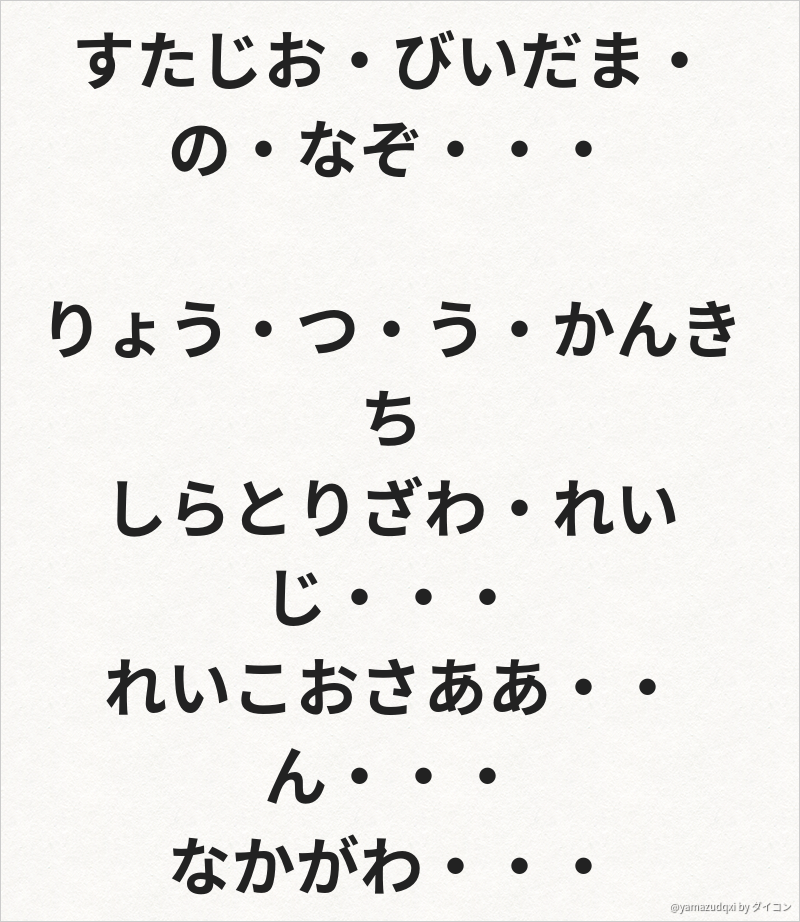 すたじお・びいだま・
の・なぞ・・・

りょう・つ・う・かんき
ち
しらとりざわ・れい
じ・・・
れいこおさああ・・
ん・・・
なかがわ・・・
@yamazudqxi by ダイコン